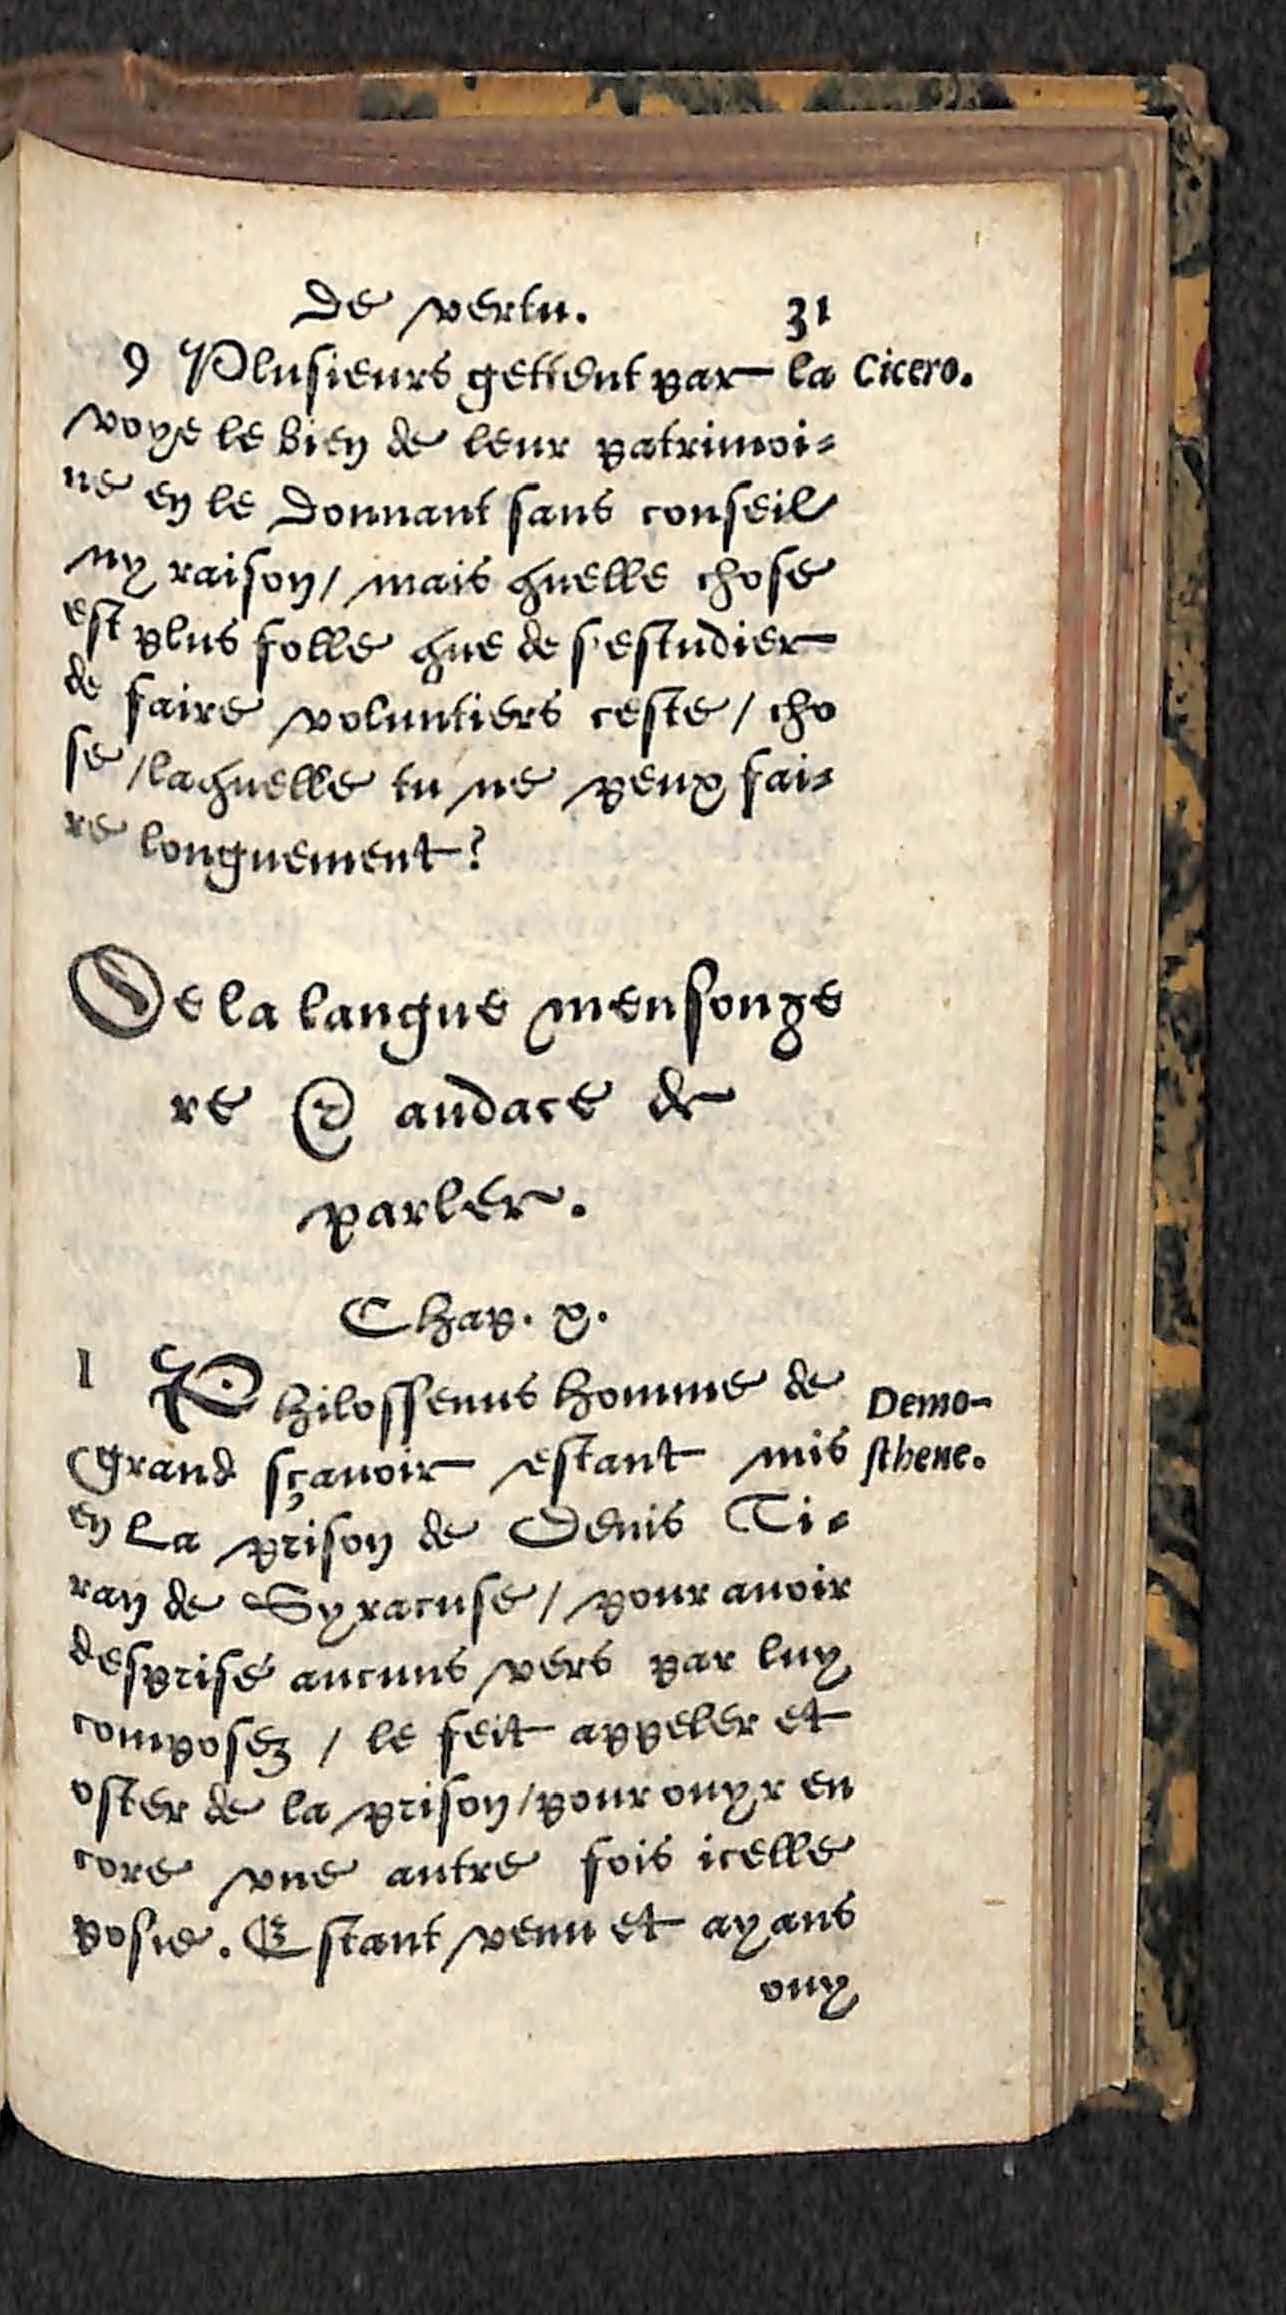 De vertu. 31
9 Plusieurs gettent par la Cicero.
voye le bien de leur patrimoi=
ne en le donnant sans conseil
ny raison/ mais quelle chose
est plus folle que de s'estudier
de faire voluntiers ceste/ cho
se/laquelle tu ne peux fai=
re longuement?
De la langue mensonge
re & audace de
parler.
Chap. x.
1 Philossenus homme de Demo-
grand sçauoir estant mis sthene.
en La prison de Denis Ti=
ran de Syracuse/ pour auoir
desprisé aucuns vers par luy
composez / le feit appeler et
oster de la prison/pour ouyr en
core vne autre fois icelle
posie. Estant venu et ayans
ouy